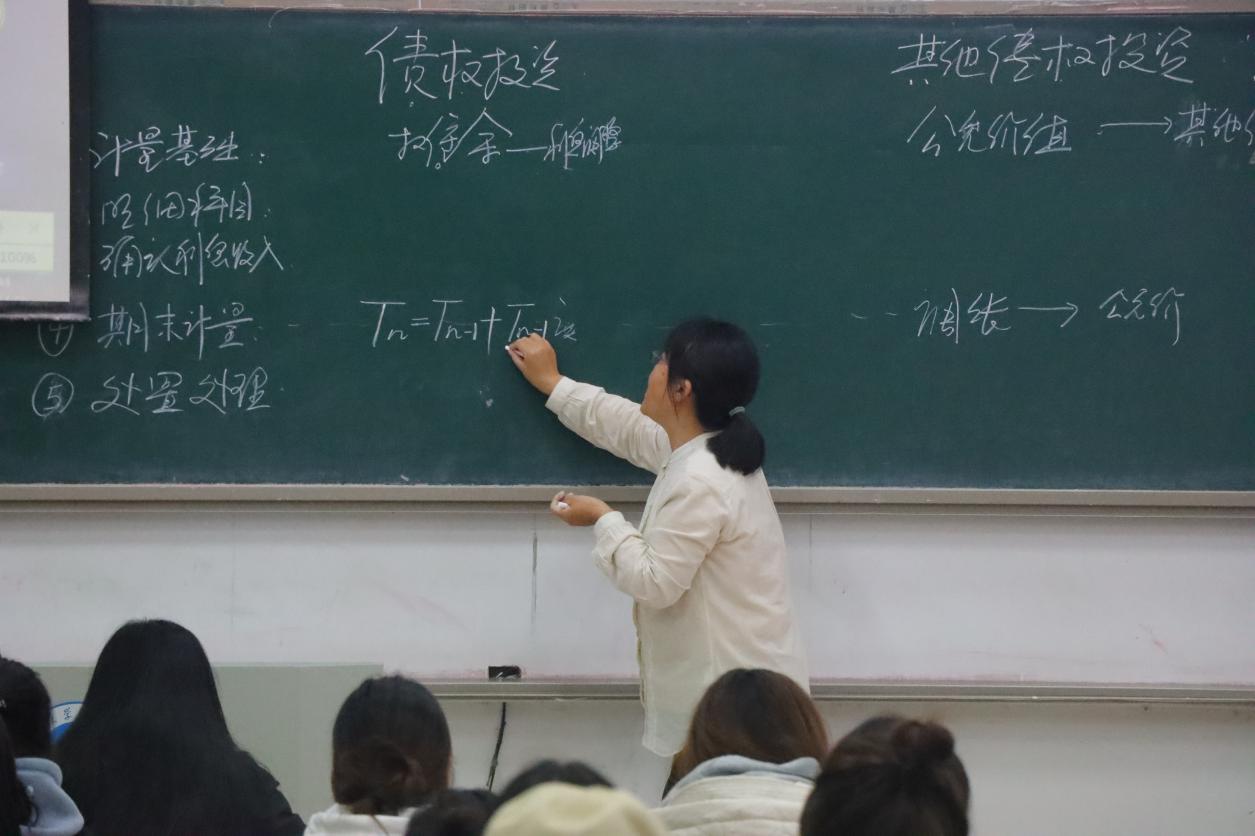 债权投资
其他债权投资
计量基础:
摊余
公允价值 → 其他
明细科目:
确认利息收入
④ 期末计量:
Tn=Tn-1+Tn-1
调账 → 公允价
⑤ 处置处理
100%